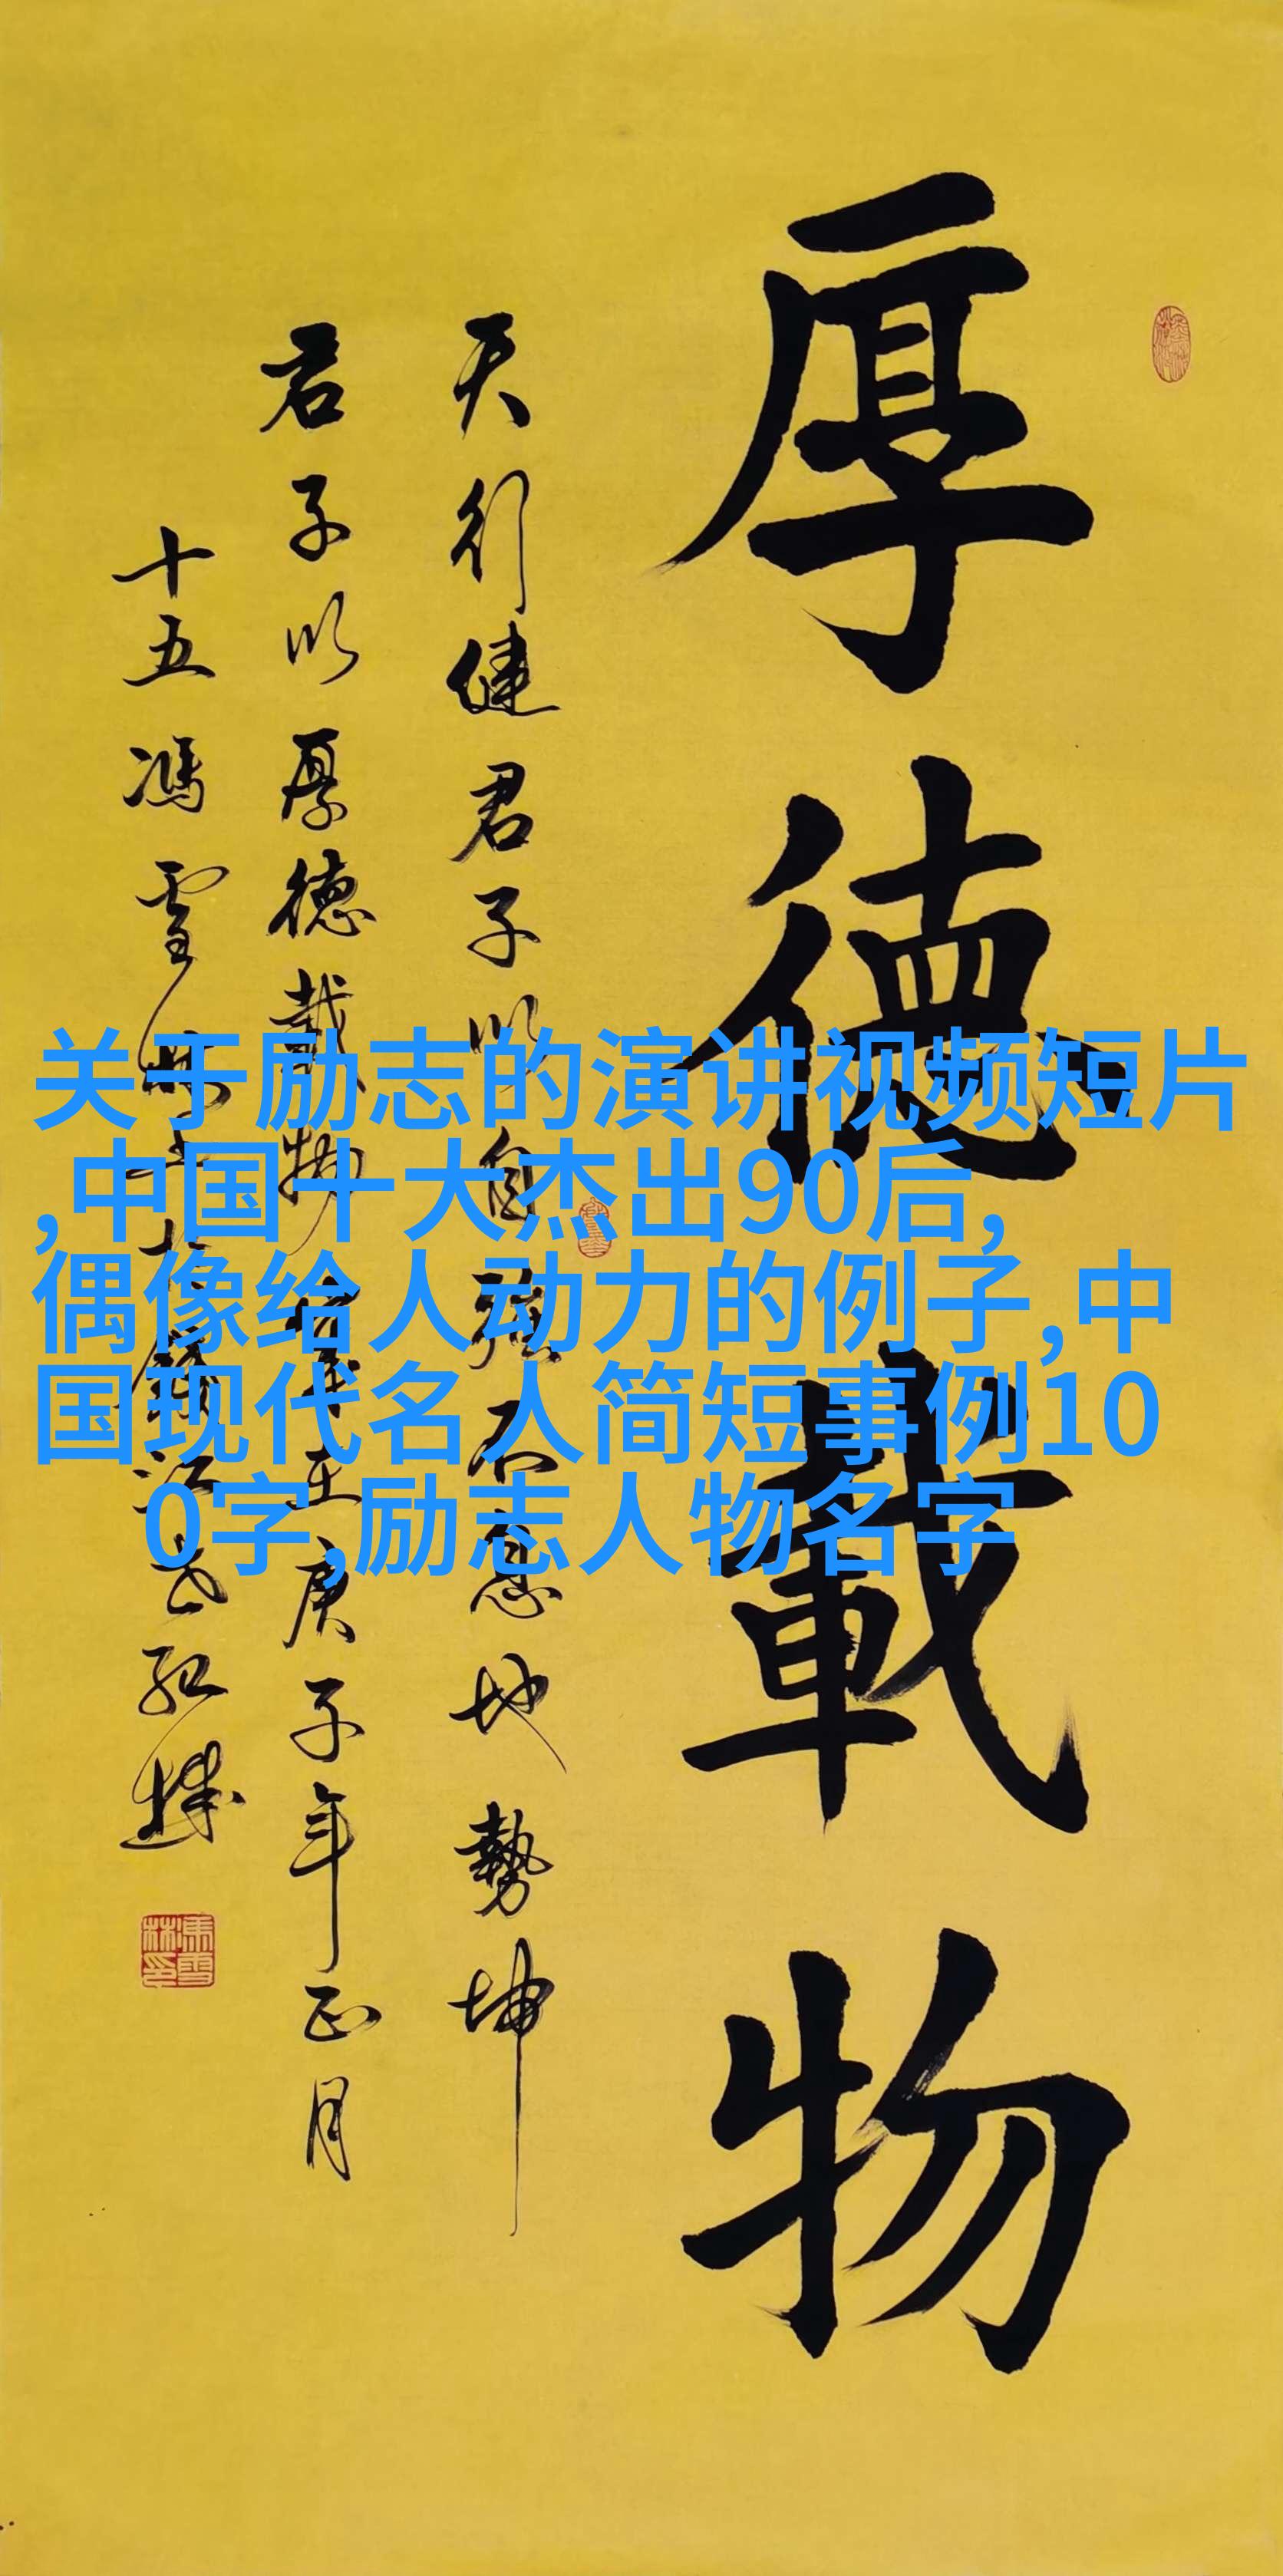 厚德載物
天行健君子以自强不息地勢坤
君子以厚德載物 庚子年正月
十五馮雪林
关于励志的演讲视频短片
,中国十大杰出90后,
偶像给人动力的例子,中
国现代名人简短事例10
0字,励志人物名字
馮雪林印